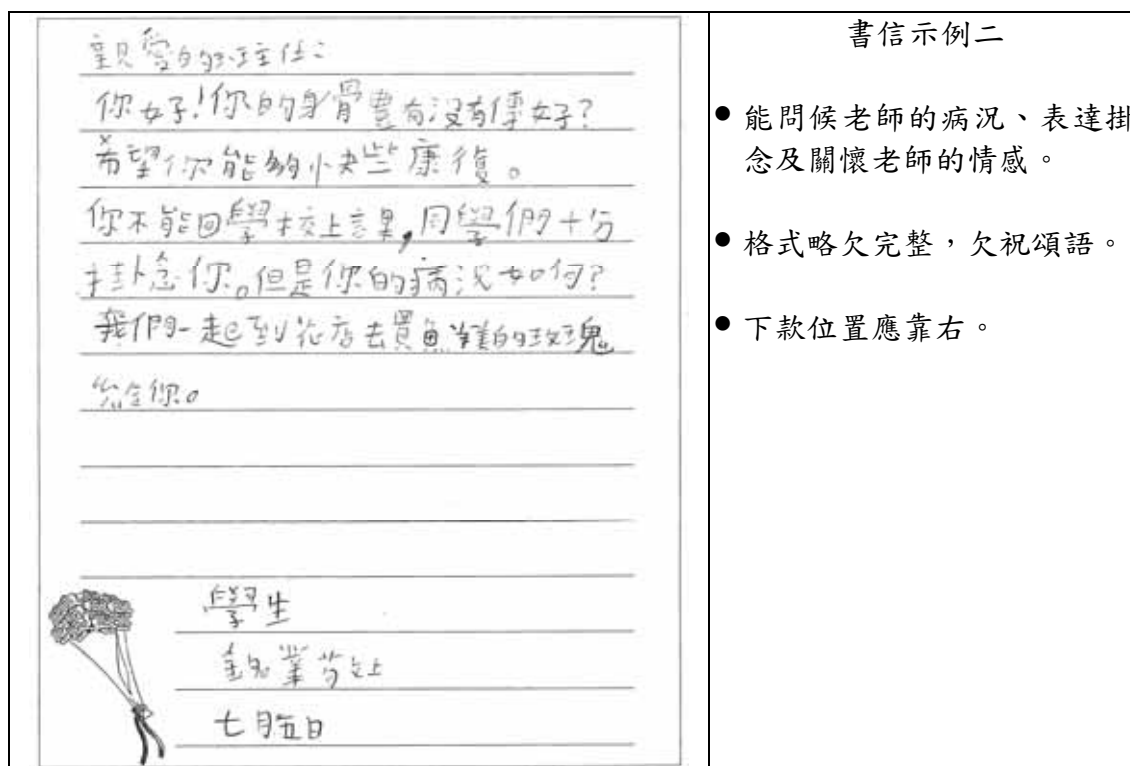 親愛的班主任：
你好！你的身體有没有好？
希望你能夠快些康復。
你不能回學校上課，同學們十分
掛念你。但是你的病況如何？
我們一起到花店去買美的玫瑰
給你。
學生
業芳上
七月五日
書信示例二
● 能問候老師的病況、表達掛
念及關懷老師的情感。
● 格式略欠完整，欠祝頌語。
● 下款位置應靠右。